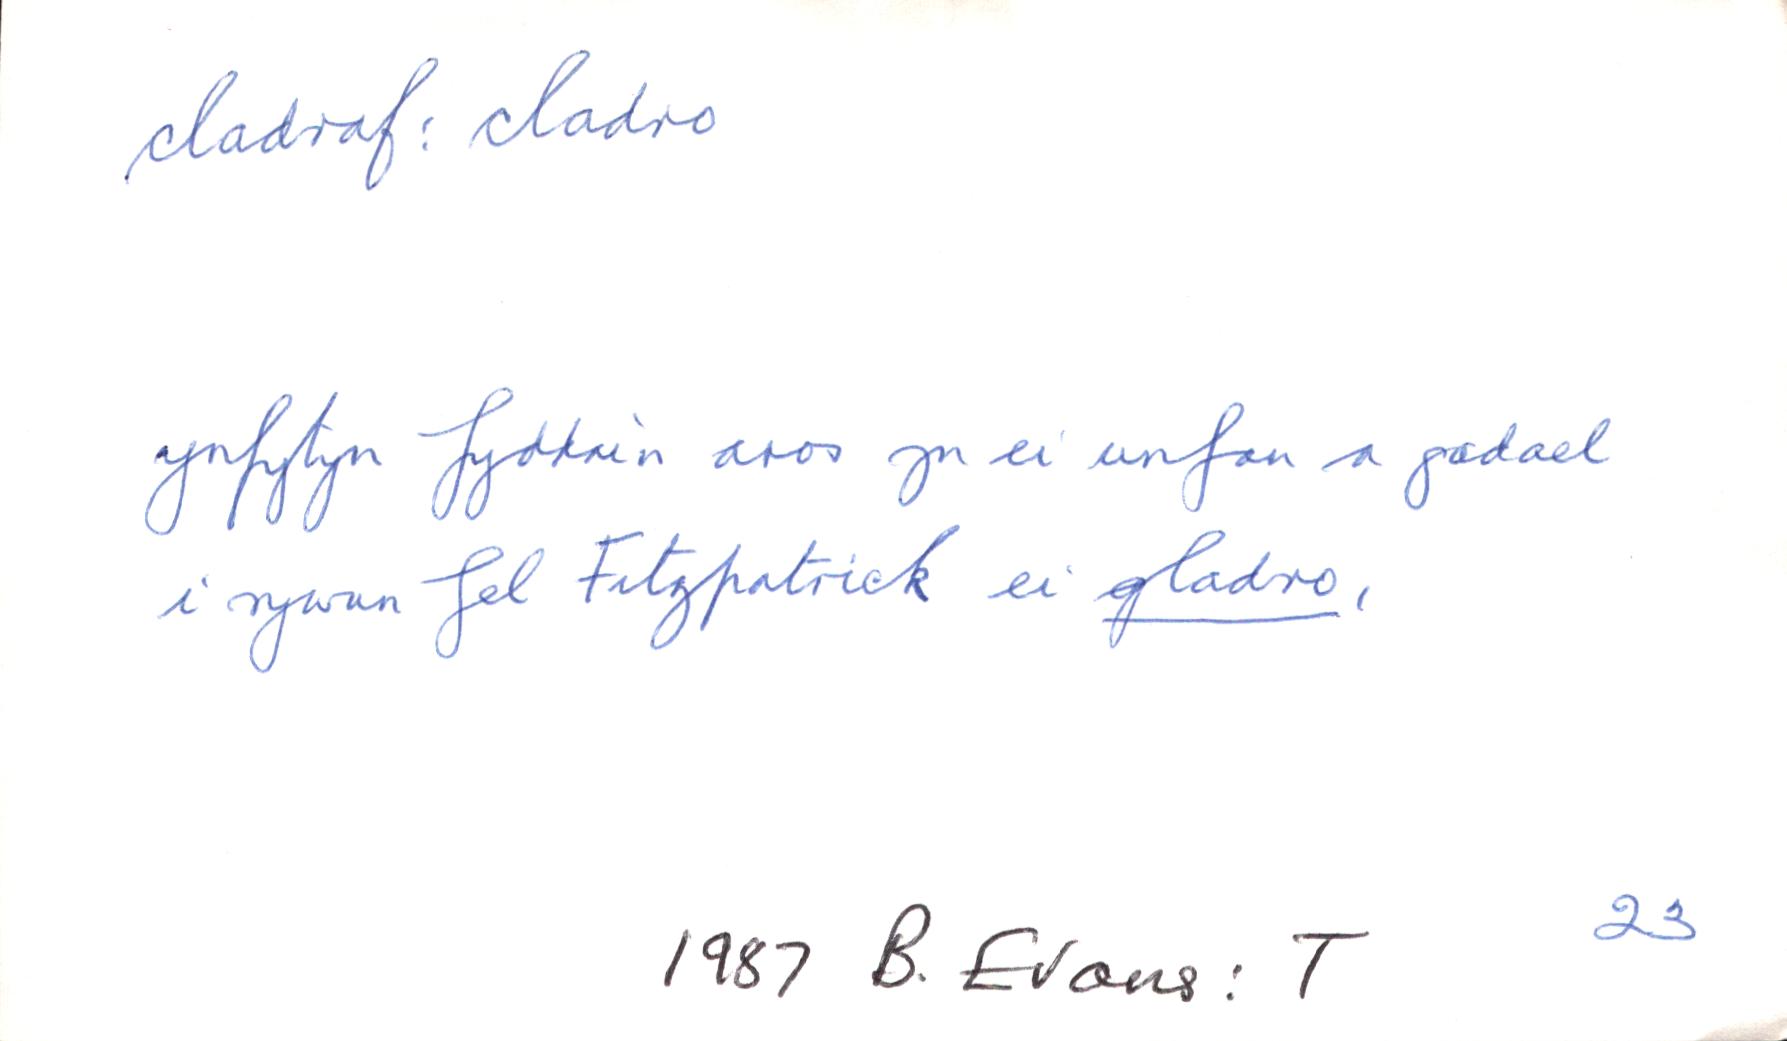 cladraf: cladro
ynfytyn fyddai'n aros yn ei unfan a gadael
i rywun fel Fitzpatrick ei gladro,
23
1987 B. Evans: T